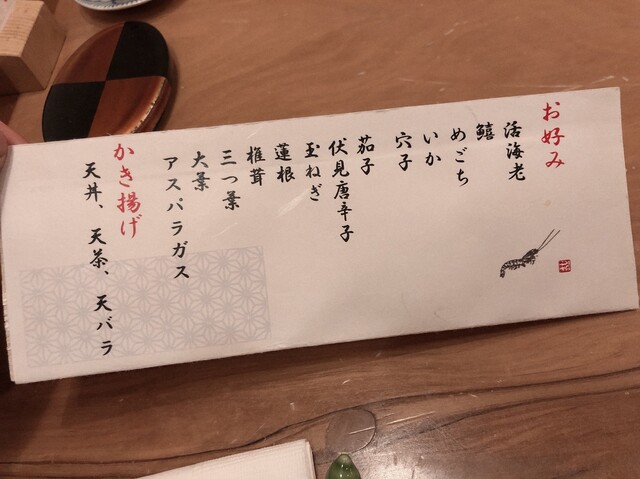 お好み
活海老
鱚
めごち
いか
穴子
茄子
伏見唐辛子
玉ねぎ
蓮根
椎茸
三つ葉
大葉
アスパラガス
かき揚げ
天丼、天茶、天バラ